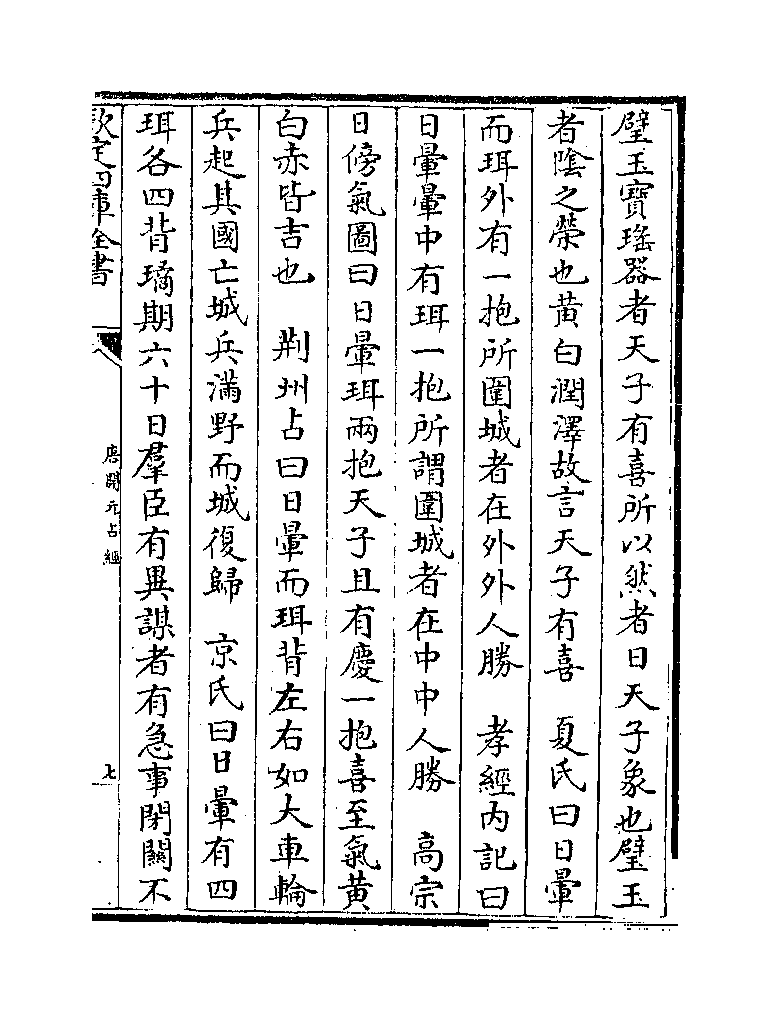 璧玉寶瑤器者天子有喜所以然者日天子象也璧玉
者陰之榮也黄白潤澤故言天子有喜　夏氏曰日暈
而珥外有一抱所圍城者在外外人勝　孝經内記曰
日暈暈中有珥一抱所謂圍城者在中中人勝　高宗
日傍氣圖曰日暈珥兩抱天子且有慶一抱喜至氣黄
白赤皆吉也　荆州占曰日暈而珥背左右如大車輪
兵起其國亡城兵滿野而城復歸　京氏曰日暈有四
珥各四背璚期六十日羣臣有異謀者有急事閉關不
欽定四庫全書
唐開元占經
七